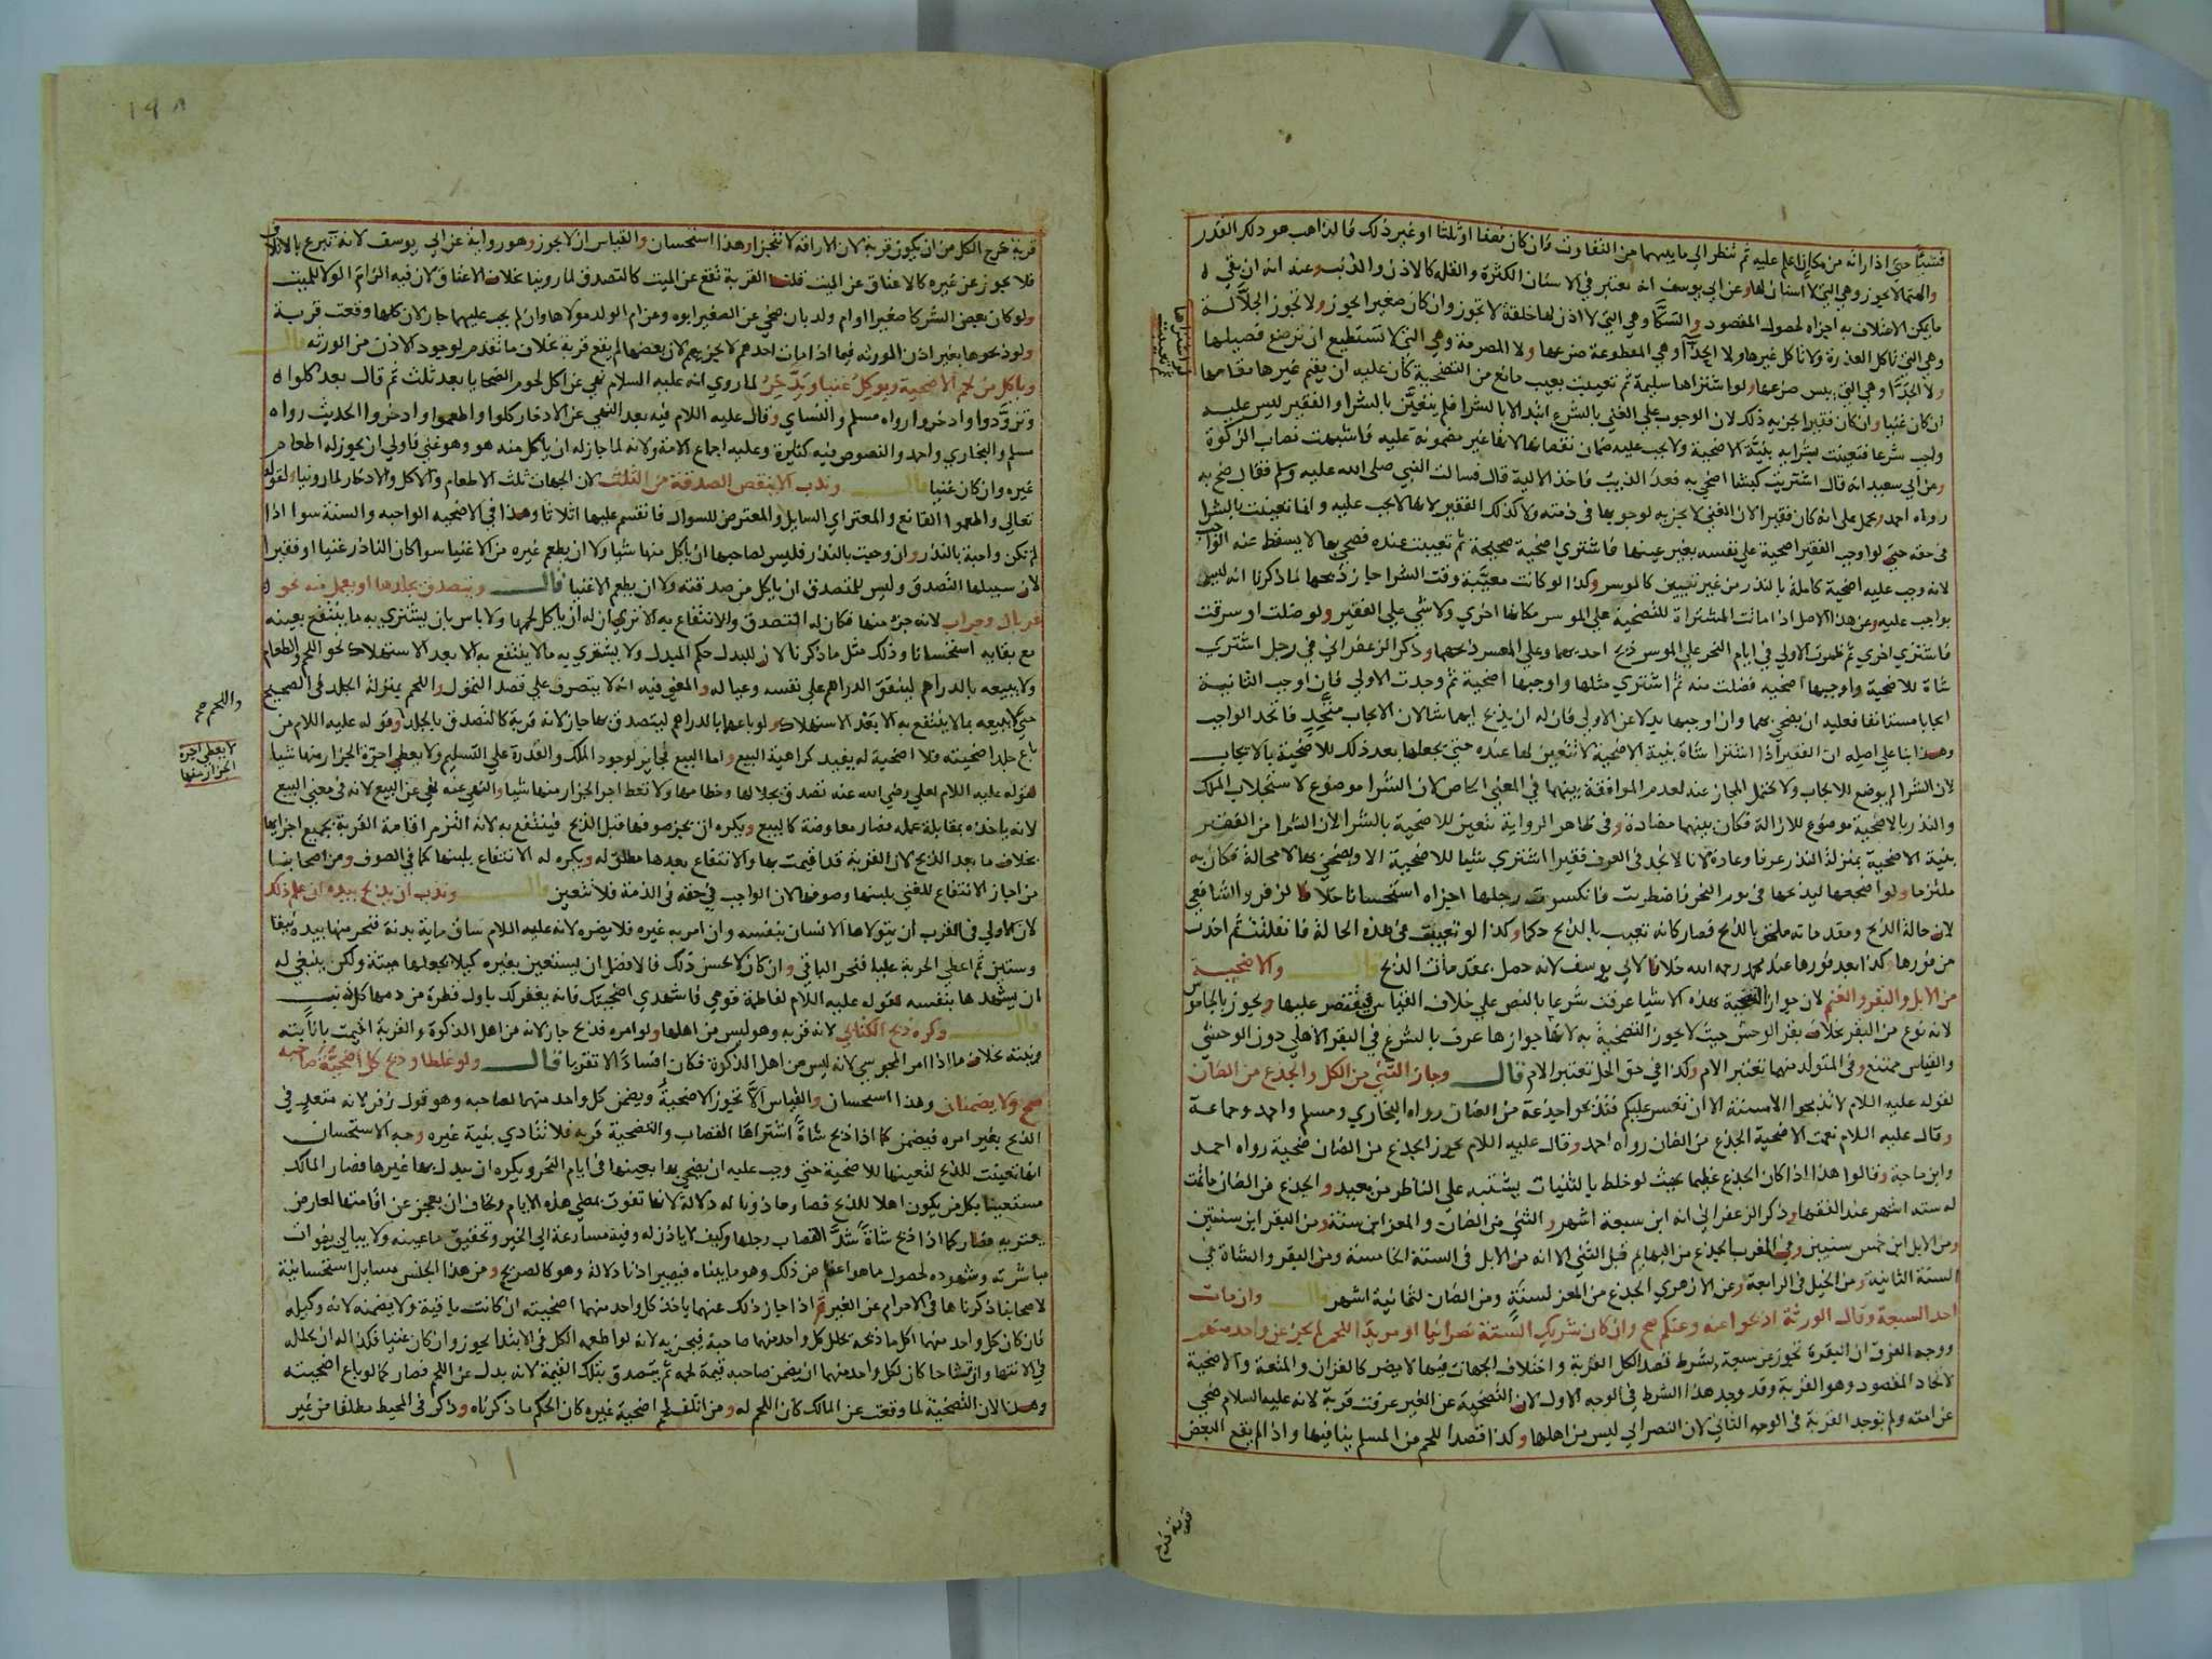 فشيأ حتى اذا راته من مكان اعلم عليه ثم ينظر الى ما بينهما من التفاوت فان كان نصفا او ثلثا او غير ذلك فالذاهب هو ذلك القدر
والهتما لا يجوز وهي التي لا اسنان لها وعن ابي يوسف انه يعتبر في الاسنان الكثرة والقلة كالاذن والذنب وعنه انه ان بقي
ما يمكن الاعتلاف به اجزاه لحصول المقصود والسكا وهي التي لا اذن لها خلقة لا تجوز وان كان صغيرا يجوز ولا تجوز الجلالة
وهي التي تاكل العذرة ولا تاكل غيرها ولا الجذا وهي المقطوعة ضرعها ولا المصرمة وهي التي لا تستطيع ان ترضع فصيلها
ولا الجدا وهي التي يبس ضرعها ولو اشتراها سليمة ثم تعيبت بعيب مانع من التضحية كان عليه ان يقيم غيرها مقامها
ان كان غنيا وان كان فقيرا يجزيه ذلك لان الوجوب على الغني بالشرع ابتدا لا بالشرا فلم يتعين بالشرا والفقير ليس عليه
واجب شرعا فتعينت بشرايه بنية الاضحية ولا يجب عليه ضمان نقصانها لانها غير مضمونة عليه فاشبهت نصاب الزكوة
وعن ابي سعيد انه قال اشتريت كبشا اضحي به فعدا الذيب فاخذ الالية قال فسالت النبي صلى الله عليه وسلم فقال ضح به
رواه احمد ويحمل على انه كان فقيرا لان الغني لا يجزيه لوجوبها في ذمته ولا كذلك الفقير لانها لا تجب عليه وانما تعينت بالشرا
في حقه حتى لو اوجب الفقير اضحية على نفسه بغير عينها فاشترى اضحية صحيحة ثم تعيبت عنده فضحى بها لا يسقط عنه الواجب
لانه وجب عليه اضحية كاملة بالنذر من غير تعيين كالموسر وكذا لو كانت معيبة وقت الشرا جاز ذبحها لما ذكرنا انه ليس
بواجب عليه وعن هذا الاصل اذا ماتت المشتراة للتضحية على الموسر مكانها اخرى ولا شي على الفقير ولو ضلت او سرقت
فاشترى اخرى ثم ظهرت الاولى في ايام النحر على الموسر ذبح احديهما وعلى المعسر ذبحهما وذكر الزعفراني في رجل اشترى
شاة للاضحية واوجبها اضحية فضلت منه ثم اشترى مثلها واوجبها اضحية ثم وجدت الاولى فان اوجب الثانية
ايجابا مستانفا فعليه ان يضحي بهما وان اوجبها بدلا عن الاولى فان له ان يذبح ايهما شا لان الايجاب متحد فاتحد الواجب
وهذا بنا على اصله ان الفقير اذا اشترى شاة بنية الاضحية لا تتعين لها عنده حتى يجعلها بعد ذلك للاضحية بالايجاب
لان الشرا لم يوضع للايجاب ولا يحتمل المجاز عنه لعدم الموافقة بينهما في المعنى الخاص لان الشرا موضوع لاستجلاب الملك
والنذر بالاضحية موضوع للازالة فكان بينهما مضادة وفي ظاهر الرواية تتعين للاضحية بالشرا لان الشرا من الفقير
بنية الاضحية بمنزلة النذر عرفا وعادة لانا لا نجد في العرف فقيرا اشترى شيا للاضحية الا ويضحي بها لا محالة فكان به
ملتزما ولو اضجعها ليذبحها في يوم النحر فاضطربت فانكسرت رجلها اجزاه استحسانا خلافا لزفر والشافعي
لان حالة الذبح ومقدماته ملحق بالذبح فصار كانه تعيب بالذبح حكما وكذا لو تعيبت في هذه الحالة فانفلتت ثم اخذت
من فورها وكذا بعد فورها عند محمد رحمه الله خلافا لابي يوسف لانه حصل بمقدمات الذبح قال والاضحية
من الابل والبقر والغنم لان جواز التضحية بهذه الاشيا عرفت شرعا بالنص على خلاف القياس فيقتصر عليها ويجوز بالجاموس
لانه نوع من البقر بخلاف بقر الوحش حيث لا يجوز التضحية به لانها جوازها عرف بالشرع في البقر الاهلي دون الوحشي
والقياس ممتنع وفي المتولد منهما تعتبر الام وكذا في حق الحل تعتبر الام قال وجاز الثني من الكل والجذع من الضان
لقوله عليه اللام لا تذبحوا الا مسنة الا ان تعسر عليكم فتذبحوا جذعة من الضان رواه البخاري ومسلم واحمد وجماعة
وقال عليه اللام نعمت الاضحية الجذع من الضان رواه احمد وقال عليه اللام يجوز الجذع من الضان ضحية رواه احمد
وابن ماجة وقالوا هذا اذا كان الجذع عظيما بحيث لو خلط بالثنيات يشتبه على الناظر من بعيد والجذع من الضان ما تمت
له ستة اشهر عند الفقها وذكر الزعفراني انه ابن سبعة اشهر والثني من الضان والمعز ابن سنة ومن البقر ابن سنتين
ومن الابل ابن خمس سنين وفي المغرب الجذع من البهايم قبل الثني الا انه من الابل في السنة الخامسة ومن البقر والشاة في
السنة الثانية ومن الخيل في الرابعة وعن الازهري الجذع من المعز لسنة ومن الضان لثمانية اشهر قال وان مات
احد السبعة وقال الورثة اذبحوا عنه وعنكم صح وان كان شريك الستة نصرانيا او مريدا للحم لم يجز عن واحد منهم
ووجه الفرق ان البقرة تجوز عن سبعة بشرط قصد الكل القربة واختلاف الجهات فيها لا يضر كالقران والمتعة والاضحية
لاتحاد المقصود وهو القربة وقد وجد هذا الشرط في الوجه الاول لان التضحية عن الغير عرفت قربة لانه عليه السلام ضحى
عن امته ولم توجد القربة في الوجه الثاني لان النصراني ليس من اهلها وكذا قصد اللحم من المسلم ينافيها واذا لم يقع البعض
قربة خرج الكل من ان يكون قربة لان الاراقة لا تتجزا وهذا استحسان والقياس ان لا يجوز وهو رواية عن ابي يوسف لانه تبرع بالاتلاف
فلا يجوز عن غيره كالاعتاق عن الميت قلنا القربة تقع عن الميت كالتصدق لما روينا بخلاف الاعتاق لان فيه الزام الولا للميت
ولو كان بعض الشركا صغيرا او ام ولد بان ضحى عن الصغير ابوه وعن ام الولد مولاها وان لم يجب عليهما جاز لان كلها وقعت قربة
ولو ذبحوها بغير اذن الورثة فيما اذا مات احدهم لا يجزيهم لان بعضها لم يقع قربة بخلاف ما تقدم لوجود الاذن من الورثة قال
وياكل من لحم الاضحية ويوكل غنيا ويدخر لما روي انه عليه السلام نهى عن اكل لحوم الضحايا بعد ثلث ثم قال بعد كلوا
وتزودوا وادخروا رواه مسلم والنساي وقال عليه اللام فيه بعد النهي عن الادخار كلوا واطعموا وادخروا الحديث رواه
مسلم والبخاري واحمد والنصوص فيه كثيرة وعليه اجماع الامة ولانه لما جاز له ان ياكل منه هو وهو غني فاولى ان يجوز له اطعام
غيره وان كان غنيا قال وندب ان لا ينقص الصدقة من الثلث لان الجهات ثلث الاطعام والاكل والادخار لما روينا ولقوله
تعالى واطعموا القانع والمعتر اي السايل والمعترض للسوال فانقسم عليها اثلاثا وهذا في الاضحية الواجبة والسنة سوا اذا
لم تكن واجبة بالنذر وان وجبت بالنذر فليس لصاحبها ان ياكل منها شيا ولا ان يطعم غيره من الاغنيا سوا كان الناذر غنيا او فقيرا
لان سبيلها التصدق وليس للمتصدق ان ياكل من صدقته ولا ان يطعم الاغنيا قال ويتصدق بجلدها او يعمل منه نحو
غربال وجراب لانه جزء منها فكان له التصدق والانتفاع به الا ترى ان له ان ياكل لحمها ولا باس بان يشتري به ما ينتفع بعينه
مع بقايه استحسانا وذلك مثل ما ذكرنا لان للبدل حكم المبدل ولا يشتري به ما لا ينتفع به الا بعد الاستهلاك نحو اللحم والطعام
ولا يبيعه بالدراهم لينفق الدراهم على نفسه وعياله والمعنى فيه انه لا يتصرف على قصد التمول واللحم بمنزلة الجلد في الصحيح
حتى لا يبيعه بما لا ينتفع به الا بعد الاستهلاك ولو باعها بالدراهم ليتصدق بها جاز لانه قربة كالتصدق بالجلد وقوله عليه اللام من
باع جلد اضحيته فلا اضحية له يفيد كراهية البيع واما البيع فجايز لوجود الملك والقدرة على التسليم ولا يعطي اجرة الجزار منها شيا
لقوله عليه اللام لعلي رضي الله عنه تصدق بجلالها وخطامها ولا تعط اجر الجزار منها شيا والنهي عنه نهي عن البيع لانه في معنى البيع
لانه ياخذه بمقابلة عمله فصار معاوضة كالبيع ويكره ان يجز صوفها قبل الذبح فينتفع به لانه التزم اقامة القربة بجميع اجزايها
بخلاف ما بعد الذبح لان القربة قد اقيمت بها والانتفاع بعدها مطلق له ويكره له الانتفاع بلبنها كما في الصوف ومن اصحابنا
من اجاز الانتفاع للغني بلبنها وصوفها لان الواجب في حقه في الذمة فلا تتعين قال وندب ان يذبح بيده ان علم ذلك
لان الاولى في القرب ان يتولاها الانسان بنفسه وان امر به غيره فلا يضره لانه عليه اللام ساق ماية بدنة فنحر منها بيده نيفا
وستين ثم اعطى الحربة عليا فنحر الباقي وان كان لا يحسن ذلك فالافضل ان يستعين بغيره كيلا يجعلها ميتة ولكن ينبغي له
ان يشهدها بنفسه لقوله عليه اللام لفاطمة قومي فاشهدي اضحيتك فانه يغفر لك باول قطرة من دمها كل ذنب
قال وكره ذبح الكتابي لانه قربة وهو ليس من اهلها ولو امره فذبح جاز لانه من اهل الذكوة والقربة اقيمت بانابته
ونيته بخلاف ما اذا امر المجوسي لانه ليس من اهل الذكوة فكان افسادا لا تقربا قال ولو غلطا وذبح كل اضحية صاحبه
صح ولا يضمنان وهذا استحسان والقياس الا تجوز الاضحية ويضمن كل واحد منهما لصاحبه وهو قول زفر لانه متعد في
الذبح بغير امره فيضمن كما اذا ذبح شاة اشتراها القصاب والتضحية قربة فلا تتادى بنية غيره وجه الاستحسان
انها تعينت للذبح لتعينها للاضحية حتى وجب عليه ان يضحي بها بعينها في ايام النحر ويكره ان يبدل بها غيرها فصار المالك
مستعينا بكل من يكون اهلا للذبح فصار ماذونا له دلالة لانها تفوت بمضي هذه الايام ويخاف ان يعجز عن اقامتها لعارض
يعتريه فصار كما اذا ذبح شاة شد القصاب رجلها وكيف لا ياذن له وفيه مسارعة الى الخير وتحقيق ما عينه ولا يبالي بفوات
مباشرته وشهوده لحصول ما هو اعظم من ذلك وهو ما بيناه فيصير اذنا دلالة وهو كالصريح ومن هذا الجنس مسايل استحسانية
لاصحابنا ذكرناها في الاحرام عن الغير ثم اذا جاز ذلك عنهما ياخذ كل واحد منهما اضحيته ان كانت باقية ولا يضمنه لانه وكيله
فان كان كل واحد منهما اكل ما ذبحه يحلل كل واحد منهما صاحبه فيجزيه لانه لو اطعمه الكل في الابتدا يجوز وان كان غنيا فكذا له ان يحلله
في الانتها وان تشاحا كان لكل واحد منهما ان يضمن صاحبه قيمة لحمه ثم يتصدق بتلك القيمة لانه بدل عن اللحم فصار كما لو باع اضحيته
وهذا لان التضحية لما وقعت عن المالك كان اللحم له ومن اتلف لحم اضحية غيره كان الحكم ما ذكرناه وذكر في المحيط مطلقا من غير
واللحم صح
لا يعطي اجرة
الجزار منها
١٩٨